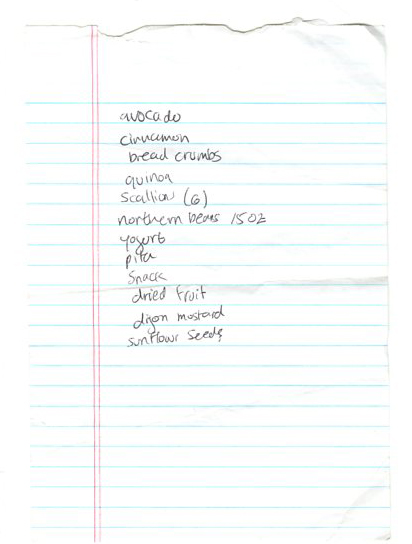 avocado
cinnamon
bread crumbs
quinoa
scallion (6)
northern beans 15oz
yogurt
pita
snack
dried fruit
dijon mustard
sunflowr seeds